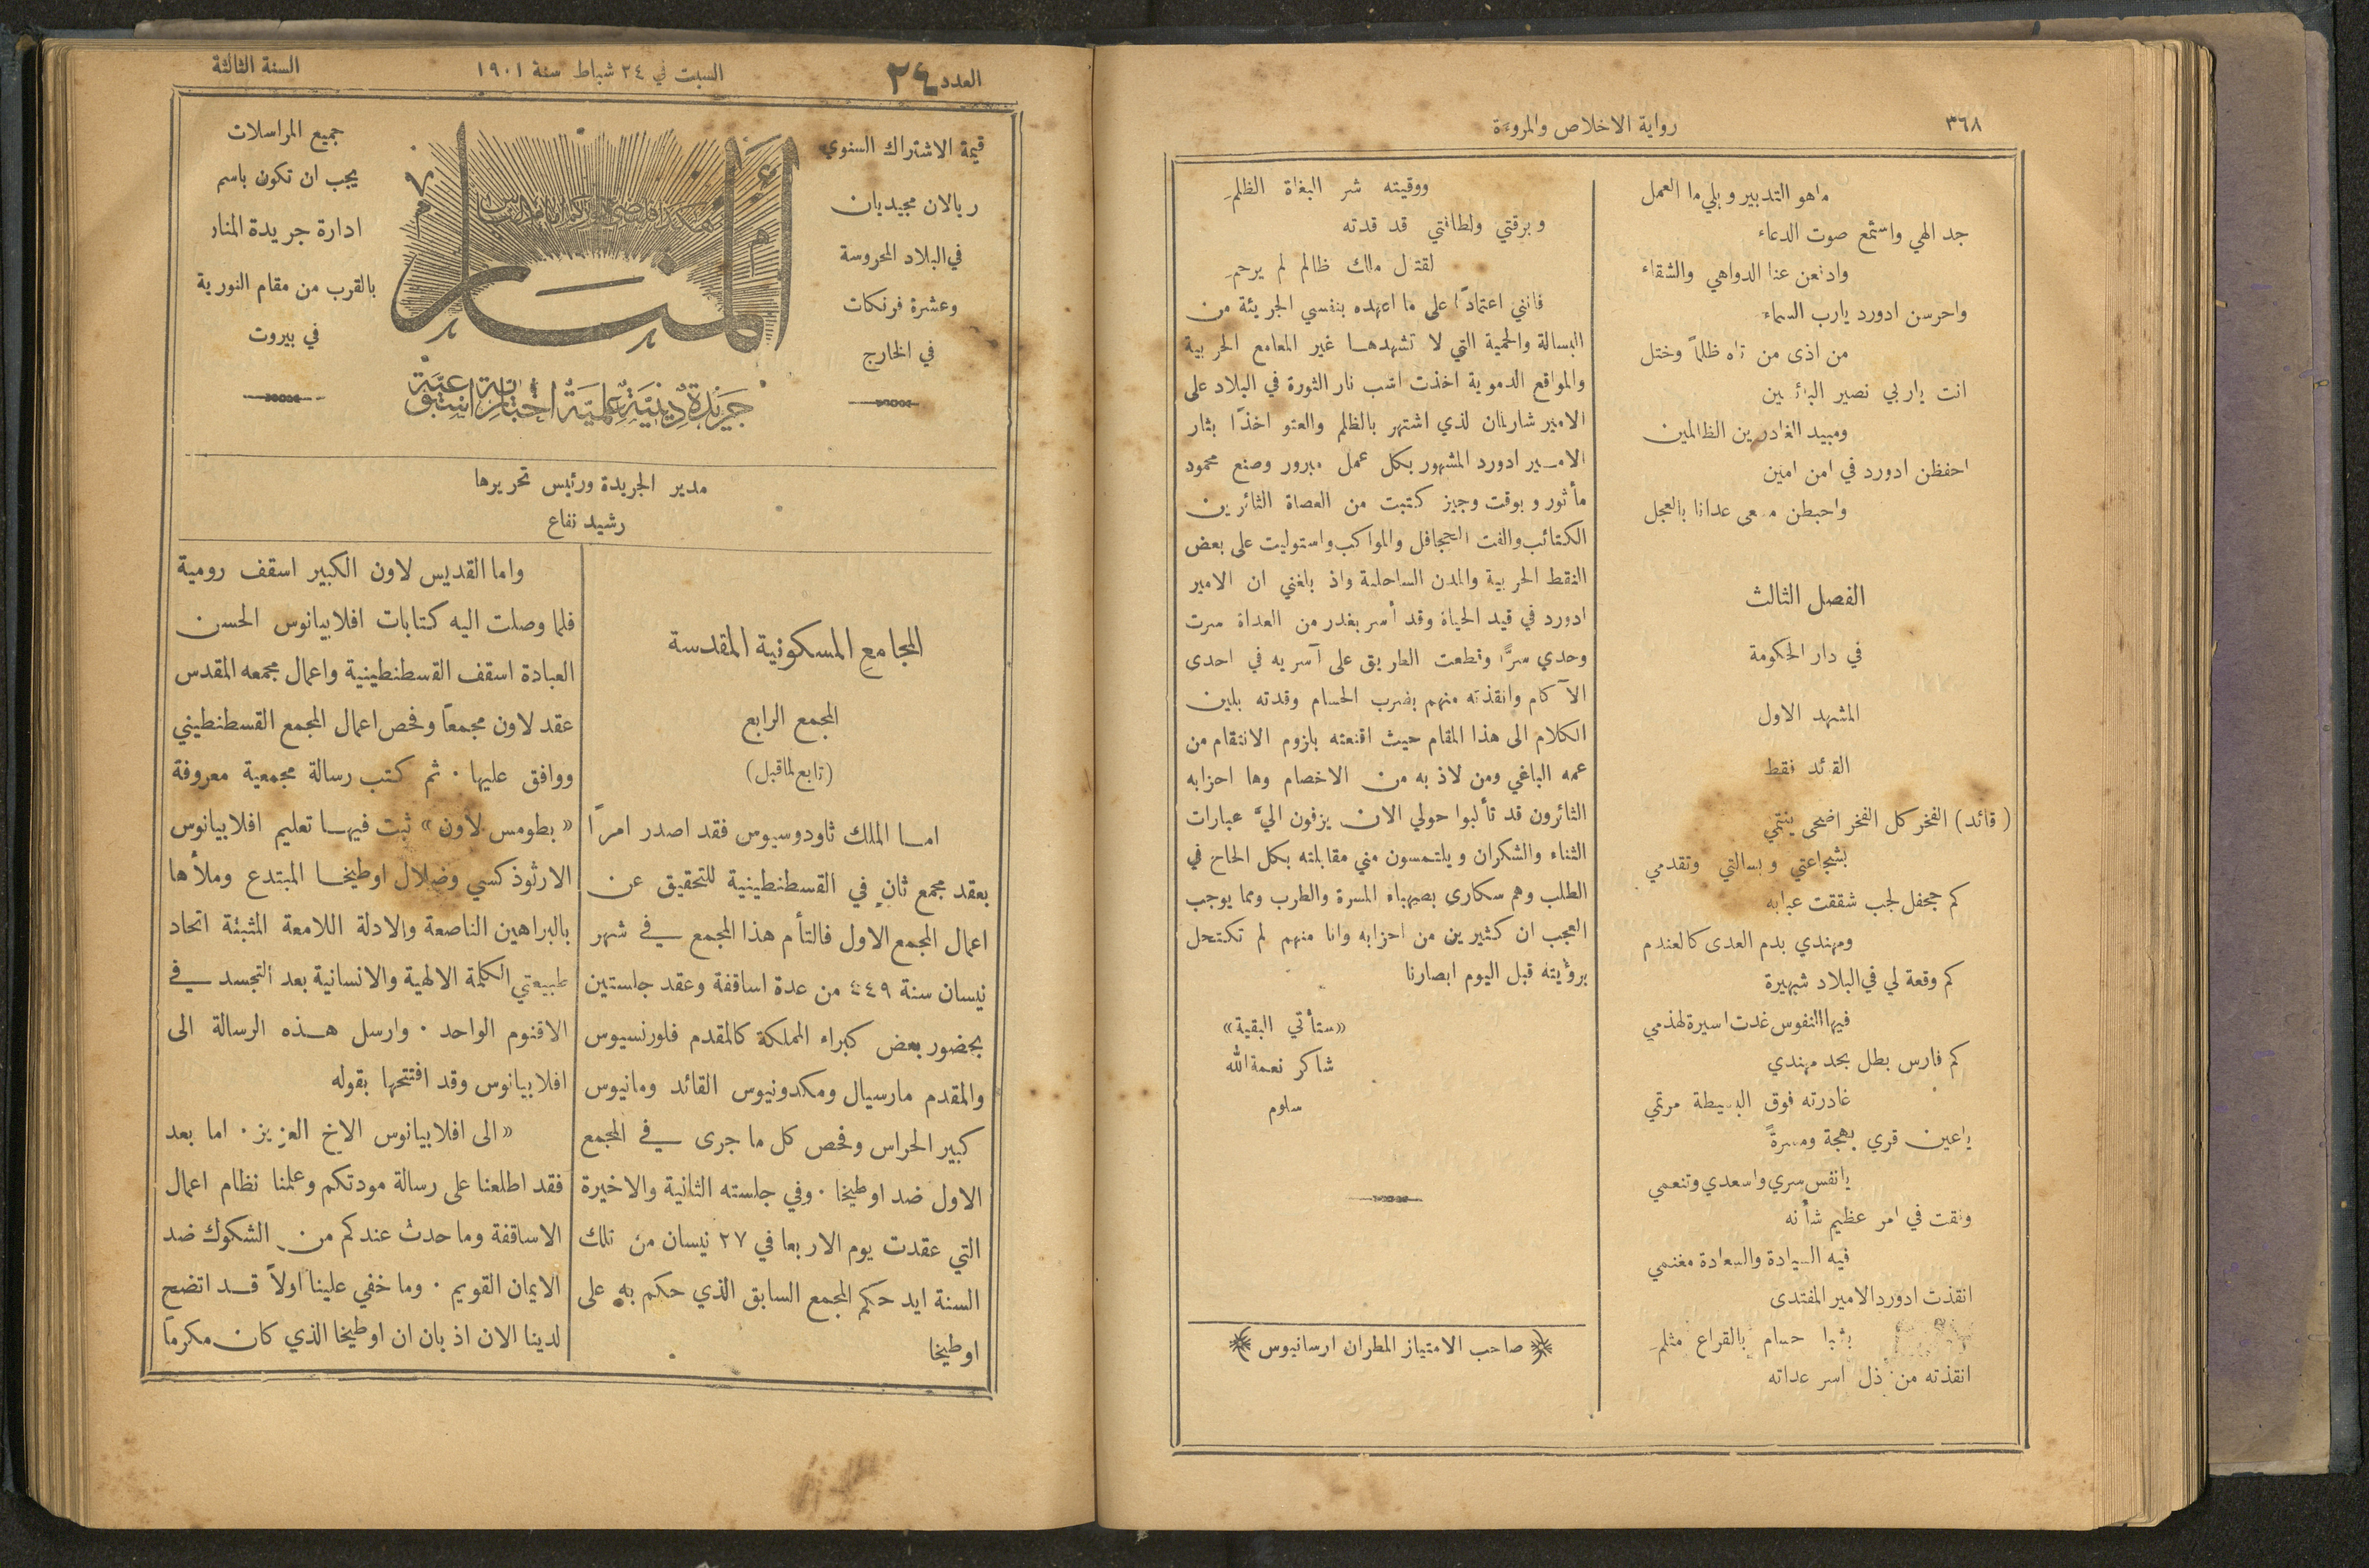 ٣٦٨
رواية الاخلاص والمروءة
ماهو التدبير ويلي ما العمل
جد الهي واستمع صوت الدعاء
وادفعن عنا الدواهي والشقاء
واحرسن ادورد يارب السماء
من اذى من تاه ظلماً وختل
انت ياربي نصير البائسين
ومبيد الغادرين الظالمين
احفظن ادورد في امن امين
واحبطن مسعى عدانا بالعجل
الفصل الثالث
في دار الحكومة
المشهد الاول
القائد فقط
(قائد) الفخر كل الفخر اضحى ينتمي
بشجاعتي وبسالتي وتقدمي
كم جحفل لجب شققت عبابه
ومهندي بدم العدى كالعندم
كم وقعة لي في البلاد شهيرة
فيها النفوس غدت اسيرة لهذمي
كم فارس بطل بحد مهندي
غادرته فوق البسيطة مرتمي
ياعين قري بهجة ومسرةً
يانفس سري واسعدي وتنعمي
وفقت في امر عظيم شأنه
فيه السيادة والسعادة مغنمي
انقذت ادورد الامير المفتدى
بشبا حسام بالقراع مثلم
انقذته من ذل اسر عداته
ووقيته شر البغاة الظلم
وبرقتي ولطافتي قد قدته
لقتال ملك ظالم لم يرحم
فانني اعتماداً على ما اعهده بنفسي الجريئة من
البسالة والحمية التي لا تشهدها غير المعامع الحربية
والمواقع الدموية اخذت اشب نار الثورة في البلاد على
الامير شارلمان لذي اشتهر بالظلم والعتو اخذاً بثار
الامير ادورد المشهور بكل عمل مبرور وصنع محمود
مأثور وبوقت وجيز كتبت من العصاة الثائرين
الكتائب والفت الجحافل والمواكب واستوليت على بعض
النقط الحربية والمدن الساحلية واذ بلغني ان الامير
ادورد في قيد الحياة وقد أسر بغدر من العداة سرت
وحدي سرًّا وقطعت الطريق على آسريه في احدى
الآكام وانقذته منهم بضرب الحسام وقدته بلين
الكلام الى هذا المقام حيث اقنعته بلزوم الانتقام من
عمه الباغي ومن لاذ به من الاخصام وها احزابه
الثائرون قد تألبوا حولي الان يزفون اليَّ عبارات
الثناء والشكران ويلتمسون مني مقابلته بكل الحاح في
الطلب وهم سكارى بصهباء المسرة والطرب ومما يوجب
العجب ان كثيرين من احزابه وانا منهم لم تكتحل
برؤيته قبل اليوم ابصارنا
«ستأتي البقية»
شاكر نعمة الله
سلوم
صاحب الامتياز المطران ارسانيوس
العدد ٣٤
السبت في ٢٤ شباط سنة ١٩٠١
السنة الثالثة
قيمة الاشتراك السنوي
ريالان مجيديان
في البلاد المحروسة
وعشرة فرنكات
في الخارج
المنار
جريدة دينية علمية اخبارية اسبوعية
جميع المراسلات
يجب ان تكون باسم
ادارة جريدة المنار
بالقرب من مقام النورية
في بيروت
مدير الجريدة ورئيس تحريرها
رشيد نفاع
المجامع المسكونية المقدسة
المجمع الرابع
(تابع لماقبل)
اما الملك ثاودوسيوس فقد اصدر امراً
بعقد مجمع ثانٍ في القسطنطينية للتحقيق عن
اعمال المجمع الاول فالتأم هذا المجمع في شهر
نيسان سنة ٤٤٩ من عدة اساقفة وعقد جلستين
بحضور بعض كبراء المملكة كالمقدم فلورنسيوس
والمقدم مارسيال ومكدونيوس القائد ومانيوس
كبير الحراس وفحص كل ما جرى في المجمع
الاول ضد اوطيخا · وفي جلسته الثانية والاخيرة
التي عقدت يوم الاربعا في ٢٧ نيسان من تلك
السنة ايد حكم المجمع السابق الذي حكم به على
اوطيخا
واما القديس لاون الكبير اسقف رومية
فلما وصلت اليه كتابات افلابيانوس الحسن
العبادة اسقف القسطنطينية واعمال مجمعه المقدس
عقد لاون مجمعاً وفحص اعمال المجمع القسطنطيني
ووافق عليها · ثم كتب رسالة مجمعية معروفة
«بطومس لاون» ثبت فيها تعليم افلابيانوس
الارثوذكسي وضلال اوطيخا المبتدع وملأها
بالبراهين الناصعة والادلة اللامعة المثبئة اتحاد
طبيعتي الكلمة الالهية والانسانية بعد التجسد في
الاقنوم الواحد · وارسل هذه الرسالة الى
افلابيانوس وقد افتتحها بقوله
«الى افلابيانوس الاخ العزيز · اما بعد
فقد اطلعنا على رسالة مودتكم وعلمنا نظام اعمال
الاساقفة وما حدث عندكم من الشكوك ضد
الايمان القويم · وما خفي علينا اولاً قد اتضح
لدينا الان اذ بان ان اوطيخا الذي كان مكرماً